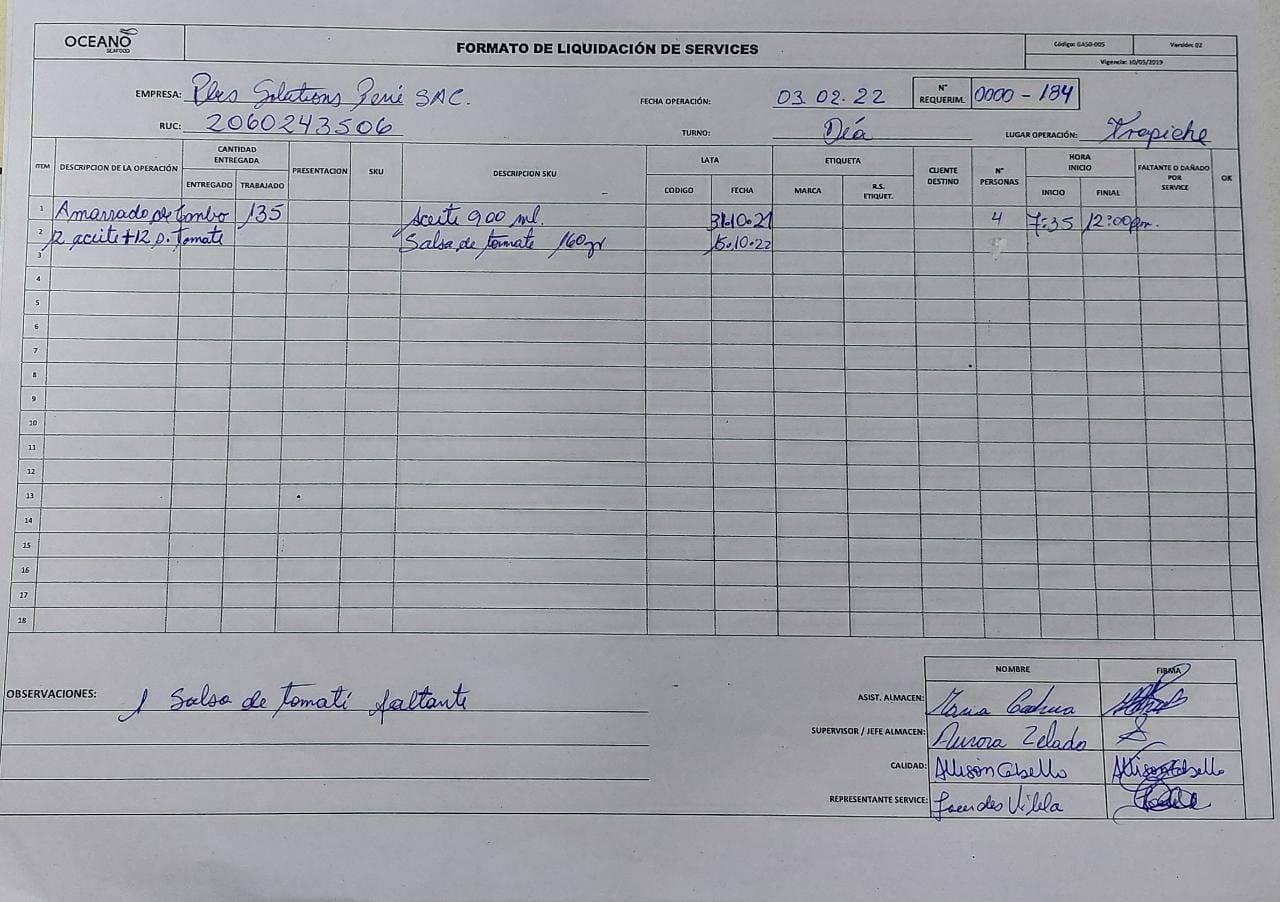 OCEANO
SEAFOOD
FORMATO DE LIQUIDACIÓN DE SERVICES
Código: GA50-005 Versión: 02
Vigencia: 10/05/2019
EMPRESA: Plus Solutions Perú SAC.
FECHA OPERACIÓN: 03.02.22
N° REQUERIM. 0000 - 184
RUC: 2060243506
TURNO: Día
LUGAR OPERACIÓN: Trapiche
ITEM DESCRIPCION DE LA OPERACIÓN CANTIDAD ENTREGADA PRESENTACION SKU DESCRIPCION SKU LATA ETIQUETA CLIENTE DESTINO N° PERSONAS HORA INICIO FALTANTE O DAÑADO POR SERVICE OK
ENTREGADO TRABAJADO CODIGO FECHA MARCA R.S. ETIQUET. INICIO FINIAL
1 Amarrado de tombo 135 Aceite 900 ml. 31.10.21 4 7:35 12:00pm.
2 12 aceite+12 p. tomate Salsa de tomate 160gr 15.10.22
3
4
5
6
7
8
9
10
11
12
13
14
15
16
17
18
OBSERVACIONES: 1 Salsa de tomati faltante
NOMBRE FIRMA
ASIST. ALMACEN: Maria Cachua
SUPERVISOR / JEFE ALMACEN: Aurora Zelado
CALIDAD: Allison Cabello Allison Cabello
REPRESENTANTE SERVICE: Lourdes Vilela